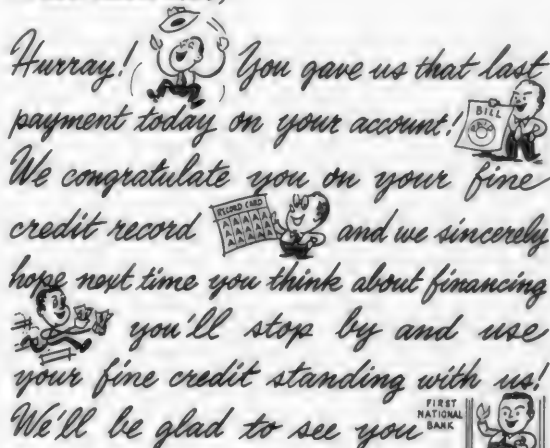 Hurray! You gave us that last
payment today on your account!
BILL
PAID
We congratulate you on your fine
credit record
RECORD CARD
A A A A A
A A A A A
A A A A A
and we sincerely
hope next time you think about financing
you'll stop by and use
your fine credit standing with us!
We'll be glad to see you
FIRST
NATIONAL
BANK